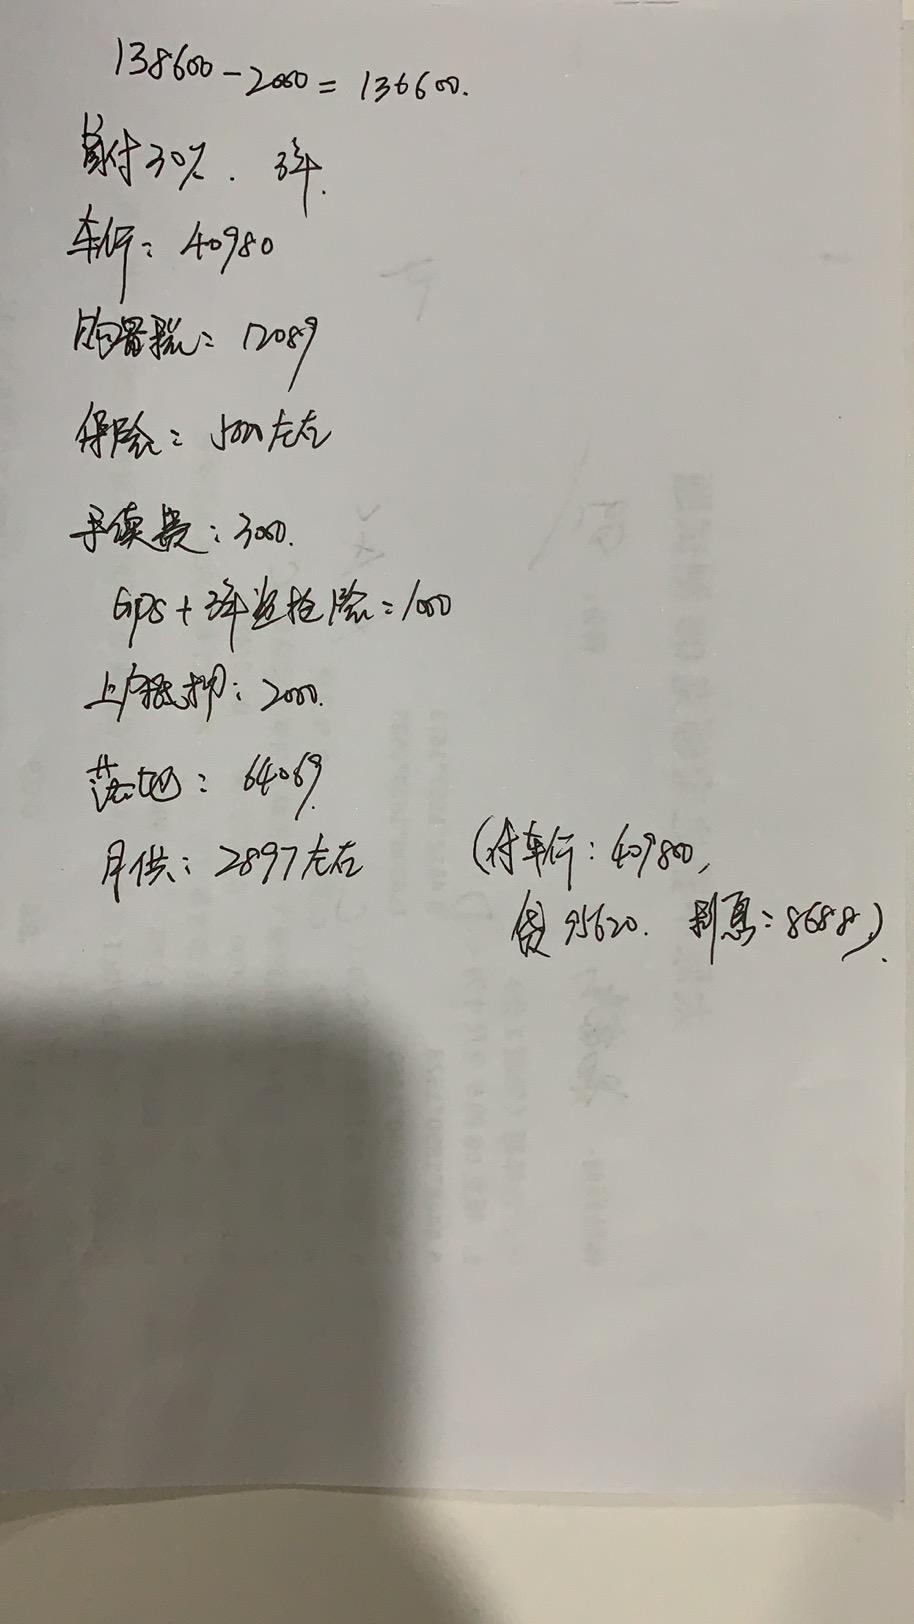 138600-2000=136600.
首付30%. 3年.
车行：40980
购置税：12089
保险：5000左右
手续费：3000.
GPS+3年盗抢险：1000
上户抵押：2000.
落地：64069
月供：2897左右
(付车行：409800,
贷95620. 利息：8688).